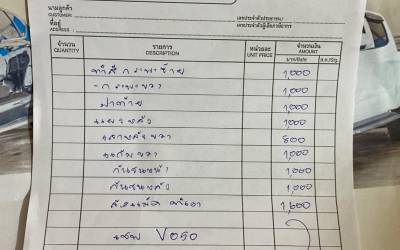 นามลูกค้า
CUSTOMER:
เลขประจำตัวประชาชน/
ที่อยู่
เลขประจำตัวผู้เสียภาษีอากร
ADDRESS :
จำนวน รายการ หน่วยละ จำนวนเงิน
QUANTITY DESCRIPTION UNIT PRICE AMOUNT
บาท/Baht ส.ต./Stg.
ทำสีกระบะซ้าย 1,000
-กระบะขวา 1,000
ฝาท้าย 1,000
1,000
800
แก้มขวา 1,000
กันชนหน้า 1,000
กันชนหลัง 1,000
1,600